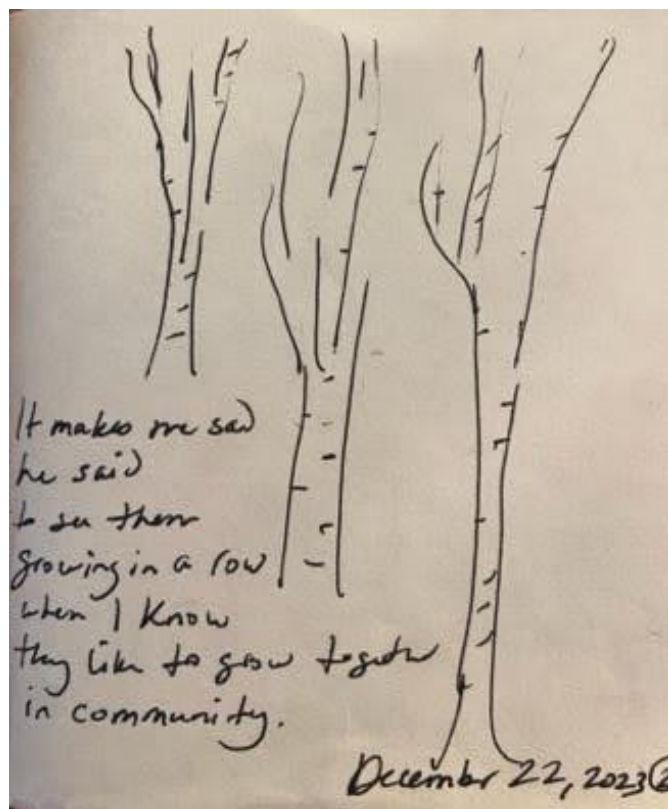 It makes me sad
he said
to see them
growing in a row
when I know
they like to grow together
in community.
December 22, 2023 ②